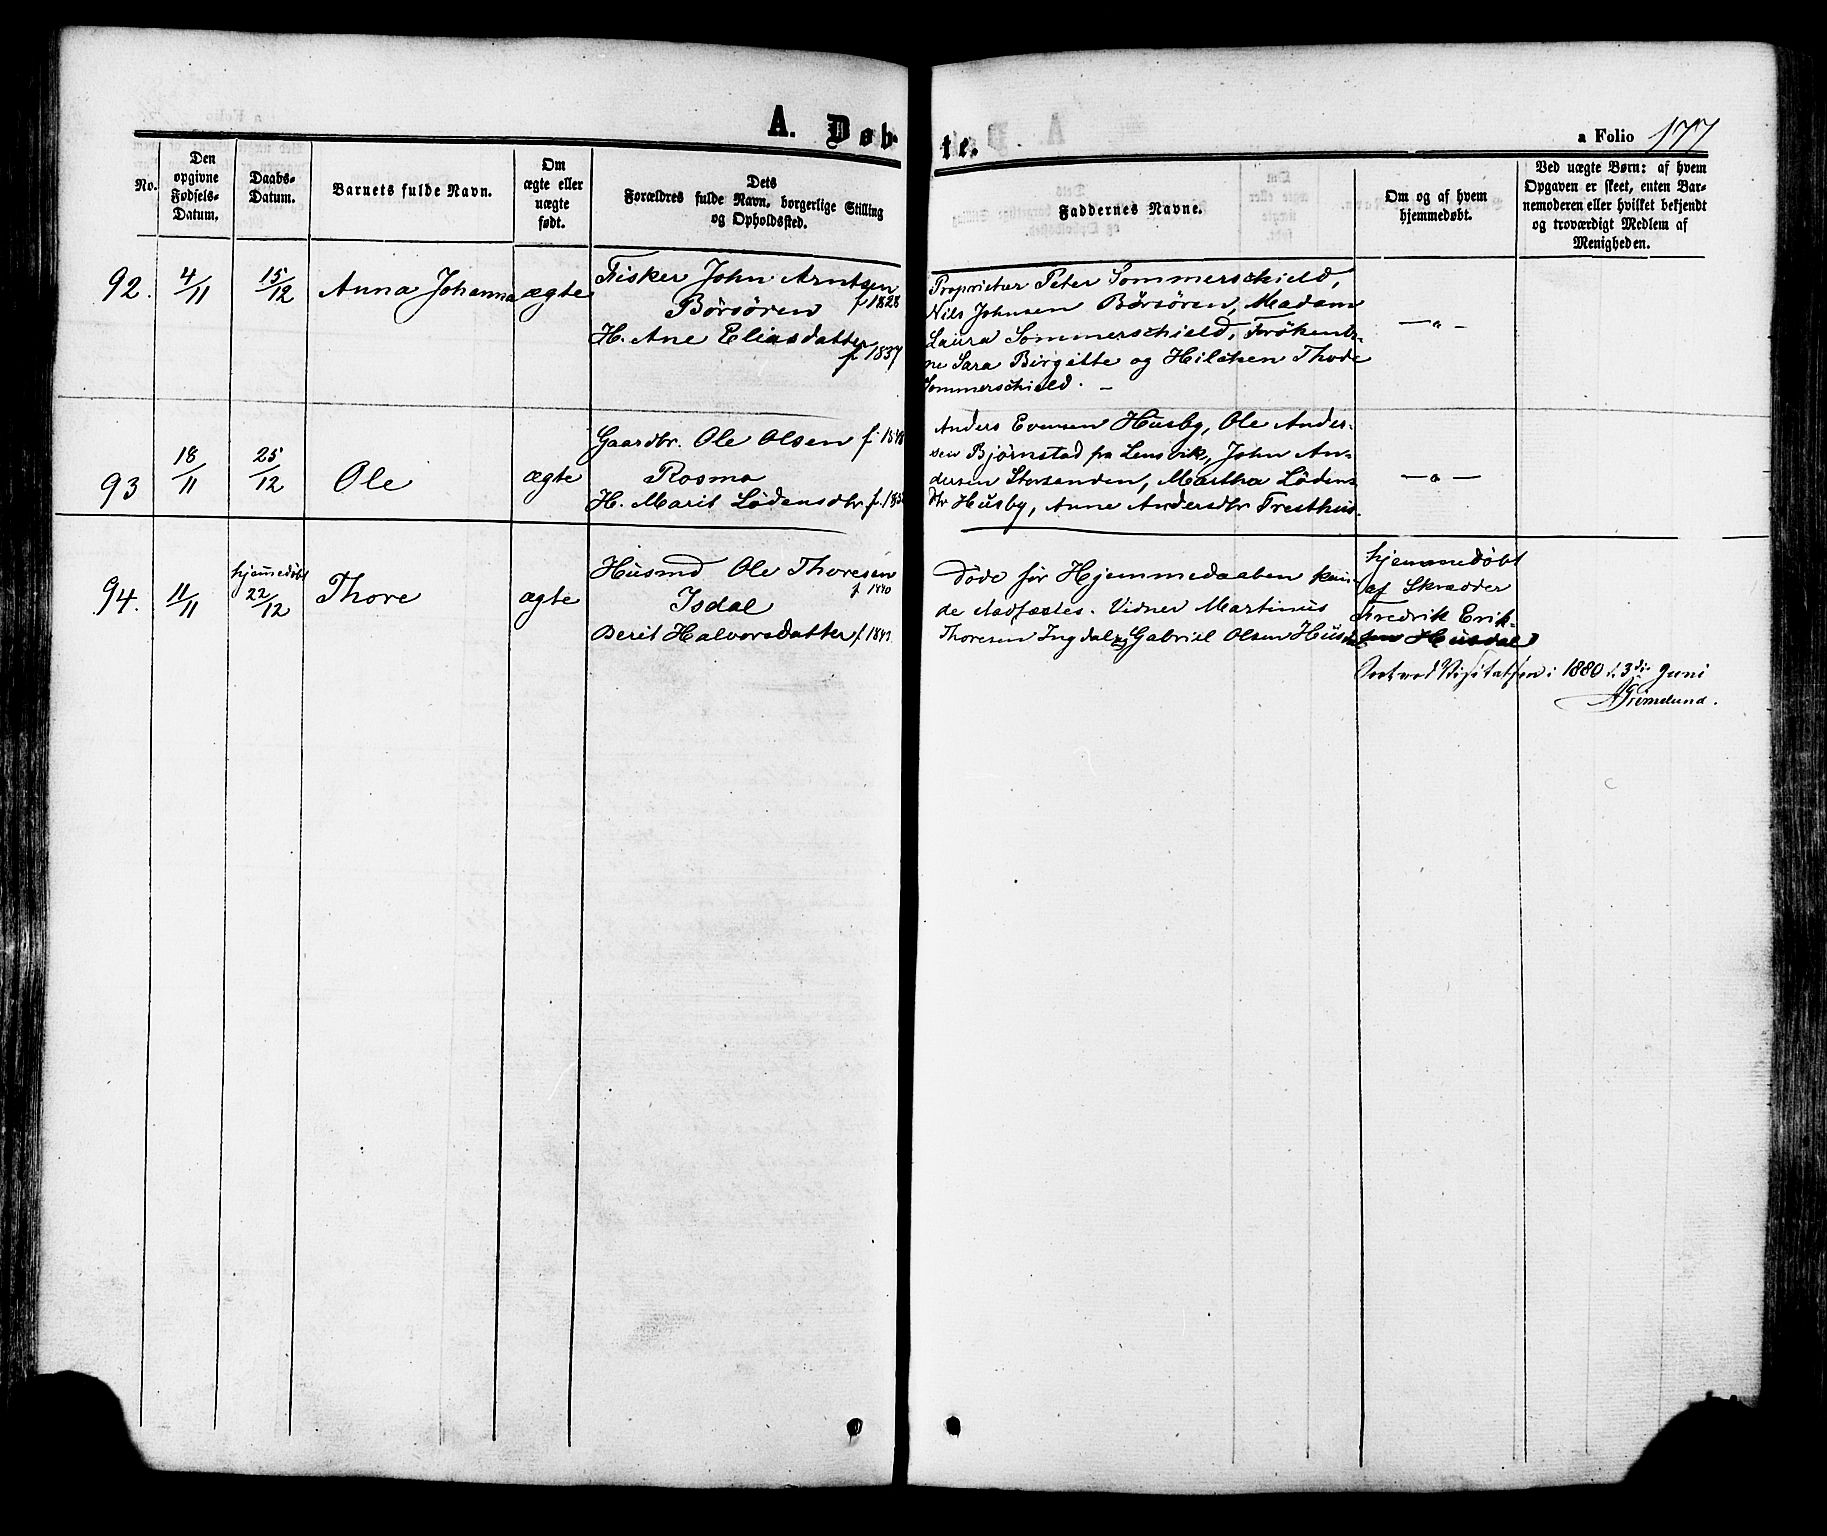 A. Døbte.
a Folio 177
No.
Den
opgivne
Fødsels-
Datum.
Daabs-
Datum.
Barnets fulde Navn.
Om
ægte eller
uægte
født.
Dets
Forældres fulde Navn, borgerlige Stilling
og Opholdssted.
Faddernes Navne.
Om og af hvem
hjemmedøbt.
Ved uægte Børn: af hvem
Opgaven er skeet, enten Bar-
nemoderen eller hvilket bekjendt
og troværdigt Medlem af
Menigheden.
92. 4/11 15/12 Anna Johanna ægte
Fisker John Arntsen
Börsören f 1828
H. Ane Eliasdatter
f 1837
Proprietær Peter Sommerschield,
Nils Johnsen Börsören, Madam
Laura Sommerschield, Frøkener-
ne Sara Birgitte og Hilchen Thode
Sommerschield. –
—"—
93 18/11 25/12 Ole ægte
Gaardbr. Ole Olsen f.
Rosmo
H. Marit Lödensdtr f.
Anders Evensen Husby, Ole Ander-
sen Bjørnstad fra Lensvik, John An-
dersen Storsanden, Martha Lödens-
dtr Husby, Anne Andersdtr
—"—
94. 11/11 hjemmedøbt
22/12 Thore ægte
Husmd Ole Thoresen
f 1840
Isdal
Berit Halvorsdatter f
Döde før Hjemmedaaben kun-
de stadfæstes. Vidner Martinus
Thoresen Ingdal og Gabriel Olsen
hjemmedøbt
af Skrædder
Fredrik Erik-
sen Husdal
Visitatsen i 1880 d. 3die Juni
Grimelund.